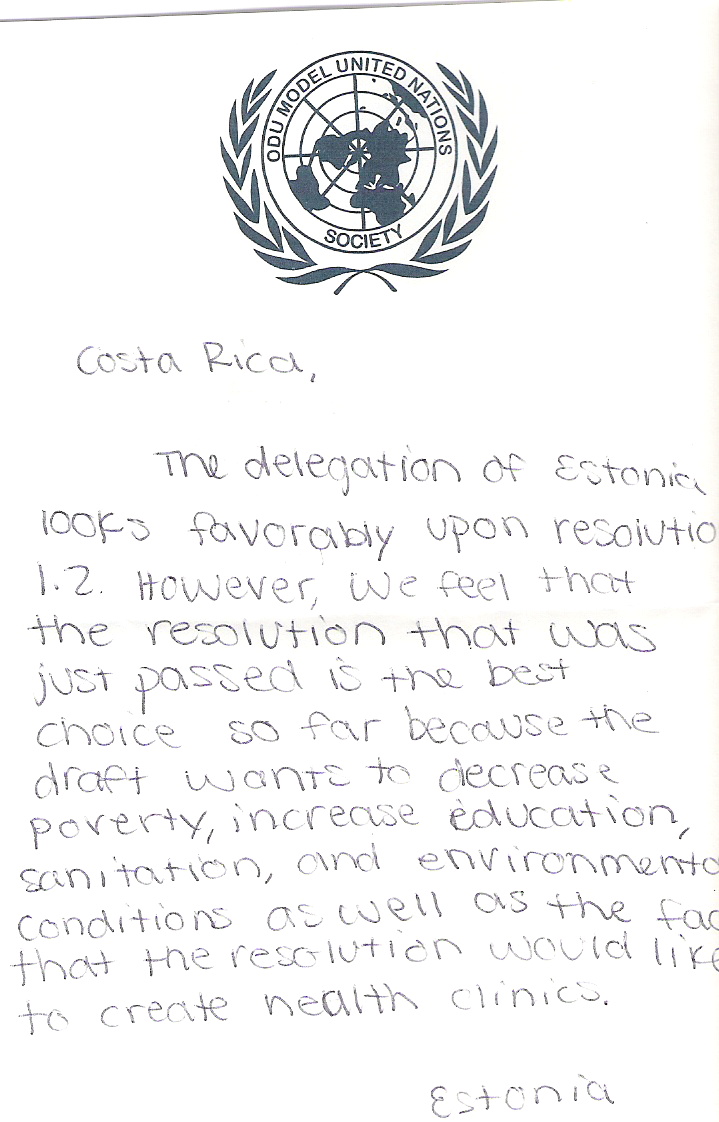 ODU MODEL UNITED NATIONS
SOCIETY
Costa Rica,
The delegation of Estonia
looks favorably upon resolutio
1.2. However, we feel that
the resolution that was
just passed is the best
choice so far because the
draft wants to decrease
poverty, increase education,
sanitation, and environmenta
conditions as well as the fac
that the resolution would like
to create health clinics.
Estonia